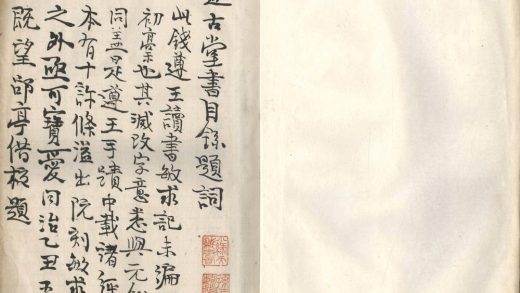 古堂書目餘題詞
此錢遵王讀書敏求記未編
初稾也其減改字意悉與元
同蓋是遵王手蹟中載諸
本有十許條溢出阮刻敏求
之外亟可寶愛同治乙丑五
既望郘亭借校題